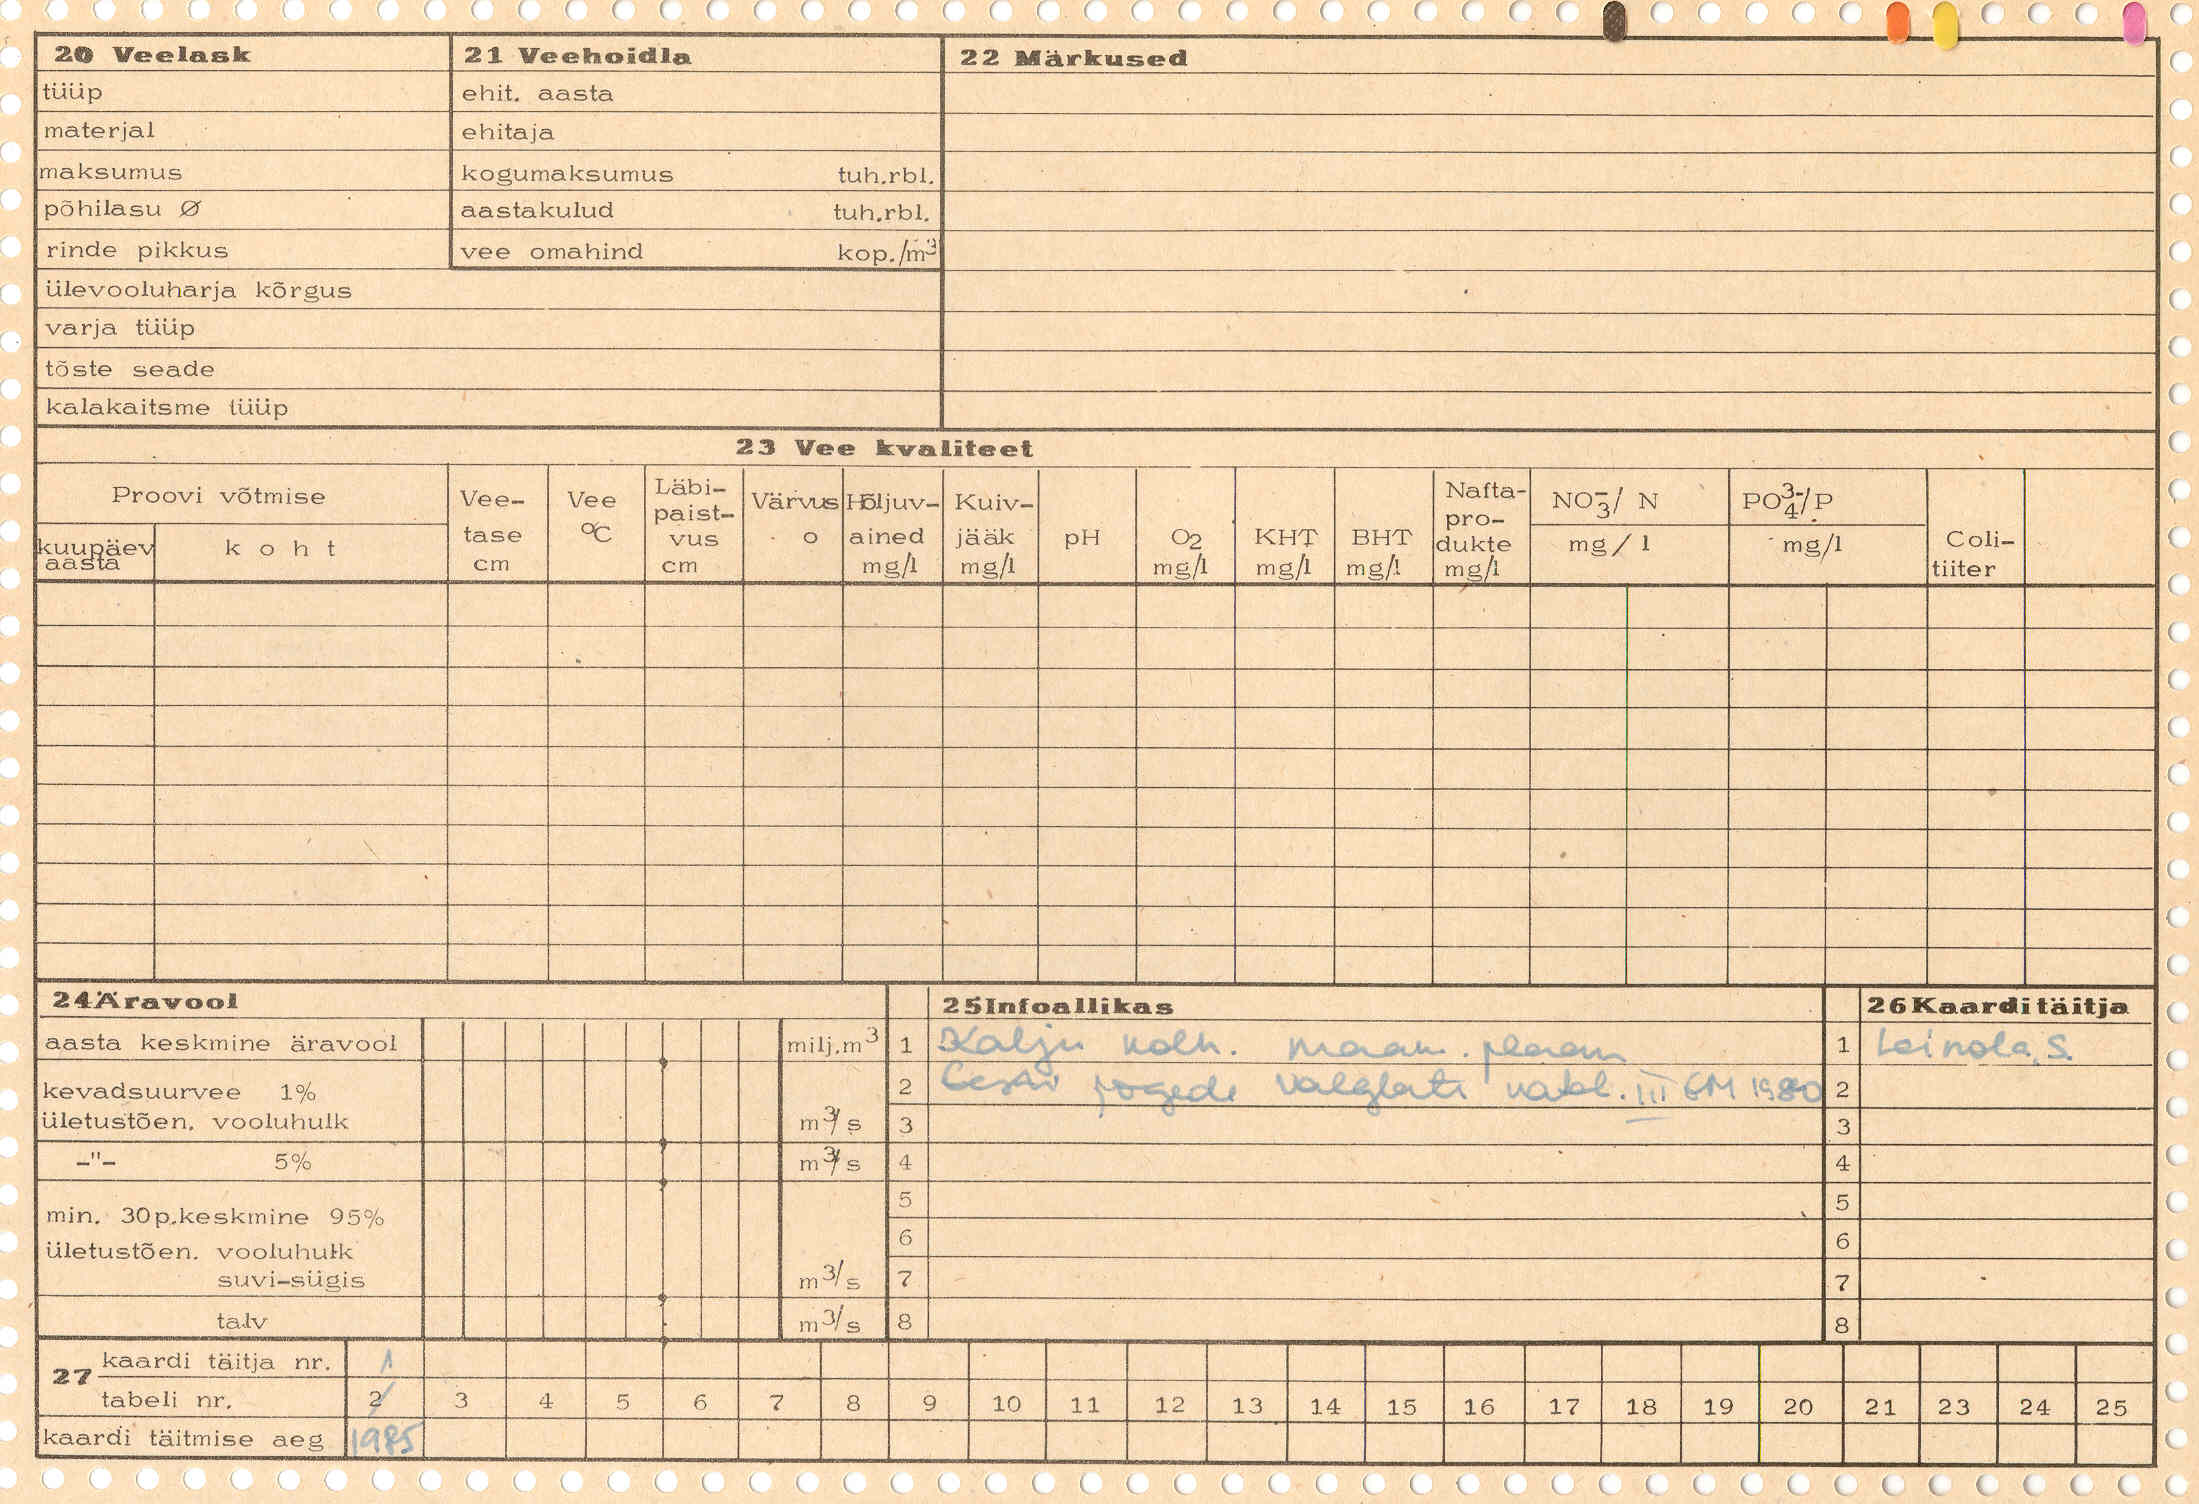 20 Veelask
tüüp
materjal
maksumus
põhilasu Ø
rinde pikkus
ülevooluharja kõrgus
varja tüüp
tõste seade
kalakaitsme tüüp
21 Veehoidla
ehit. aasta
ehitaja
kogumaksumus tuh.rbl.
aastakulud tuh.rbl.
vee omahind kop./m³
22 Märkused
23 Vee kvaliteet
Proovi võtmise
kuupäev aasta
koht
Vee-
tase
cm
Vee
°C
Läbi-
paist-
vus
cm
Värvus
o
Hõljuv-
ained
mg/l
Kuiv-
jääk
mg/l
pH
O₂
mg/l
KHT
mg/l
BHT
mg/l
Nafta-
pro-
dukte
mg/l
NO₃⁻/ N
mg/l
PO₄³⁻/P
mg/l
Coli-
tiiter
24 Äravool
aasta keskmine äravool milj.m³
kevadsuurvee 1%
ületustõen. vooluhulk m³/s
-"- 5% m³/s
min. 30p.keskmine 95%
ületustõen. vooluhulk
suvi-sügis m³/s
talv m³/s
25 Infoallikas
1 Kalju kolh. maak. plaan
2 Eesti jõgede valglate katal. III EM 1980
3
4
5
6
7
8
26 Kaardi täitja
1 Leinola, S.
2
3
4
5
6
7
8
27 kaardi täitja nr. 1
tabeli nr. 2 3 4 5 6 7 8 9 10 11 12 13 14 15 16 17 18 19 20 21 23 24 25
kaardi täitmise aeg 1985